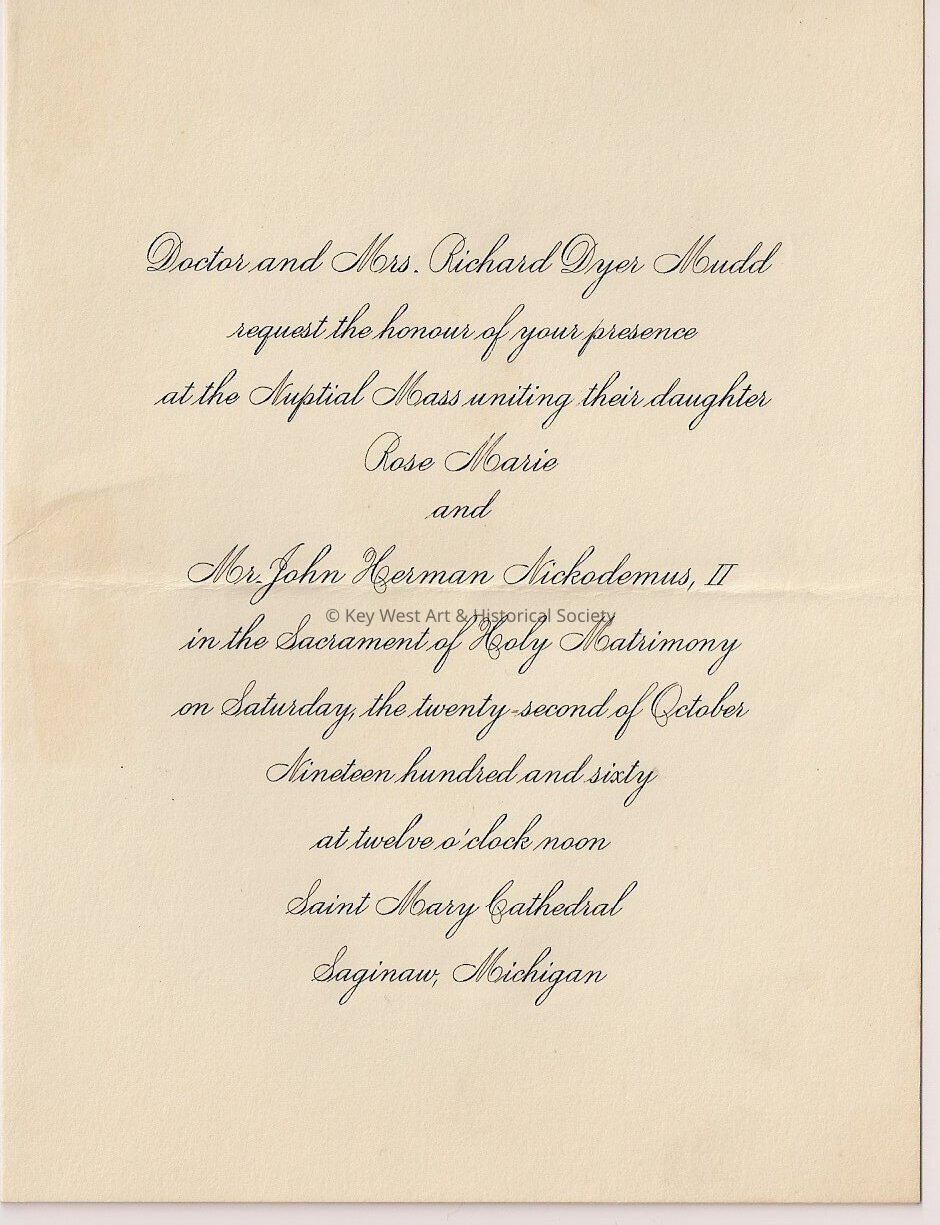 Doctor and Mrs. Richard Dyer Mudd
request the honour of your presence
at the Nuptial Mass uniting their daughter
Rose Marie
and
Mr. John Herman Nickodemus, II
© Key West Art & Historical Society
in the Sacrament of Holy Matrimony
on Saturday, the twenty-second of October
Nineteen hundred and sixty
at twelve o'clock noon
Saint Mary Cathedral
Saginaw, Michigan